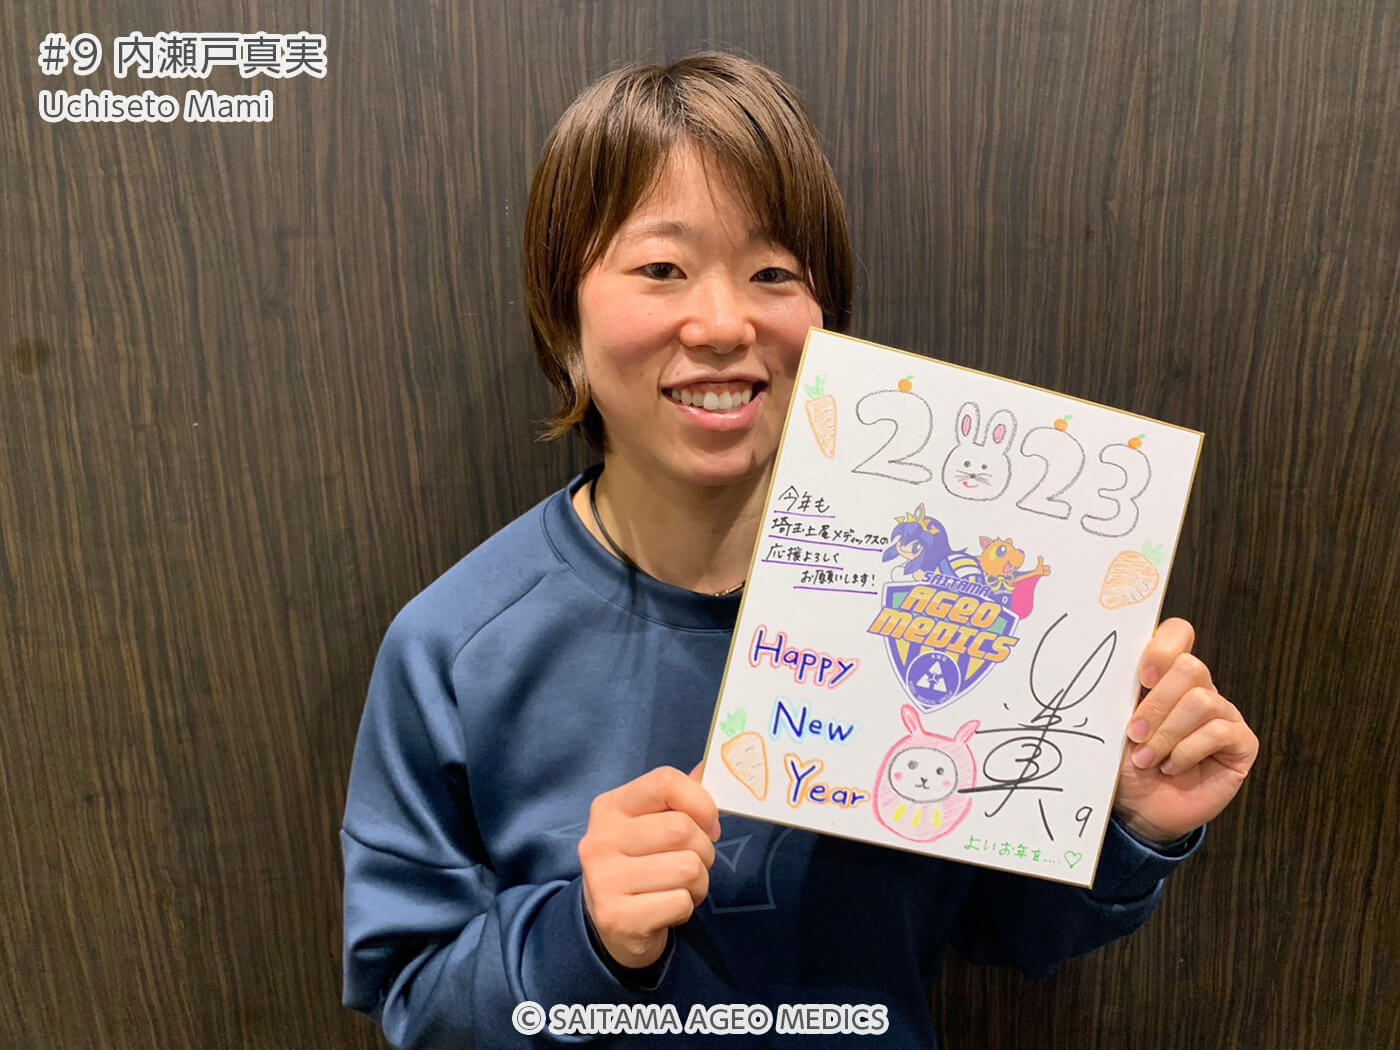 #9 内瀬戸真実
Uchiseto Mami
2023
今年も
埼玉上尾メディックスの
応援よろしく
お願いします!
SAITAMA
AGEO
MEDICS
Happy
New
Year
9
よいお年を....♡
© SAITAMA AGEO MEDICS